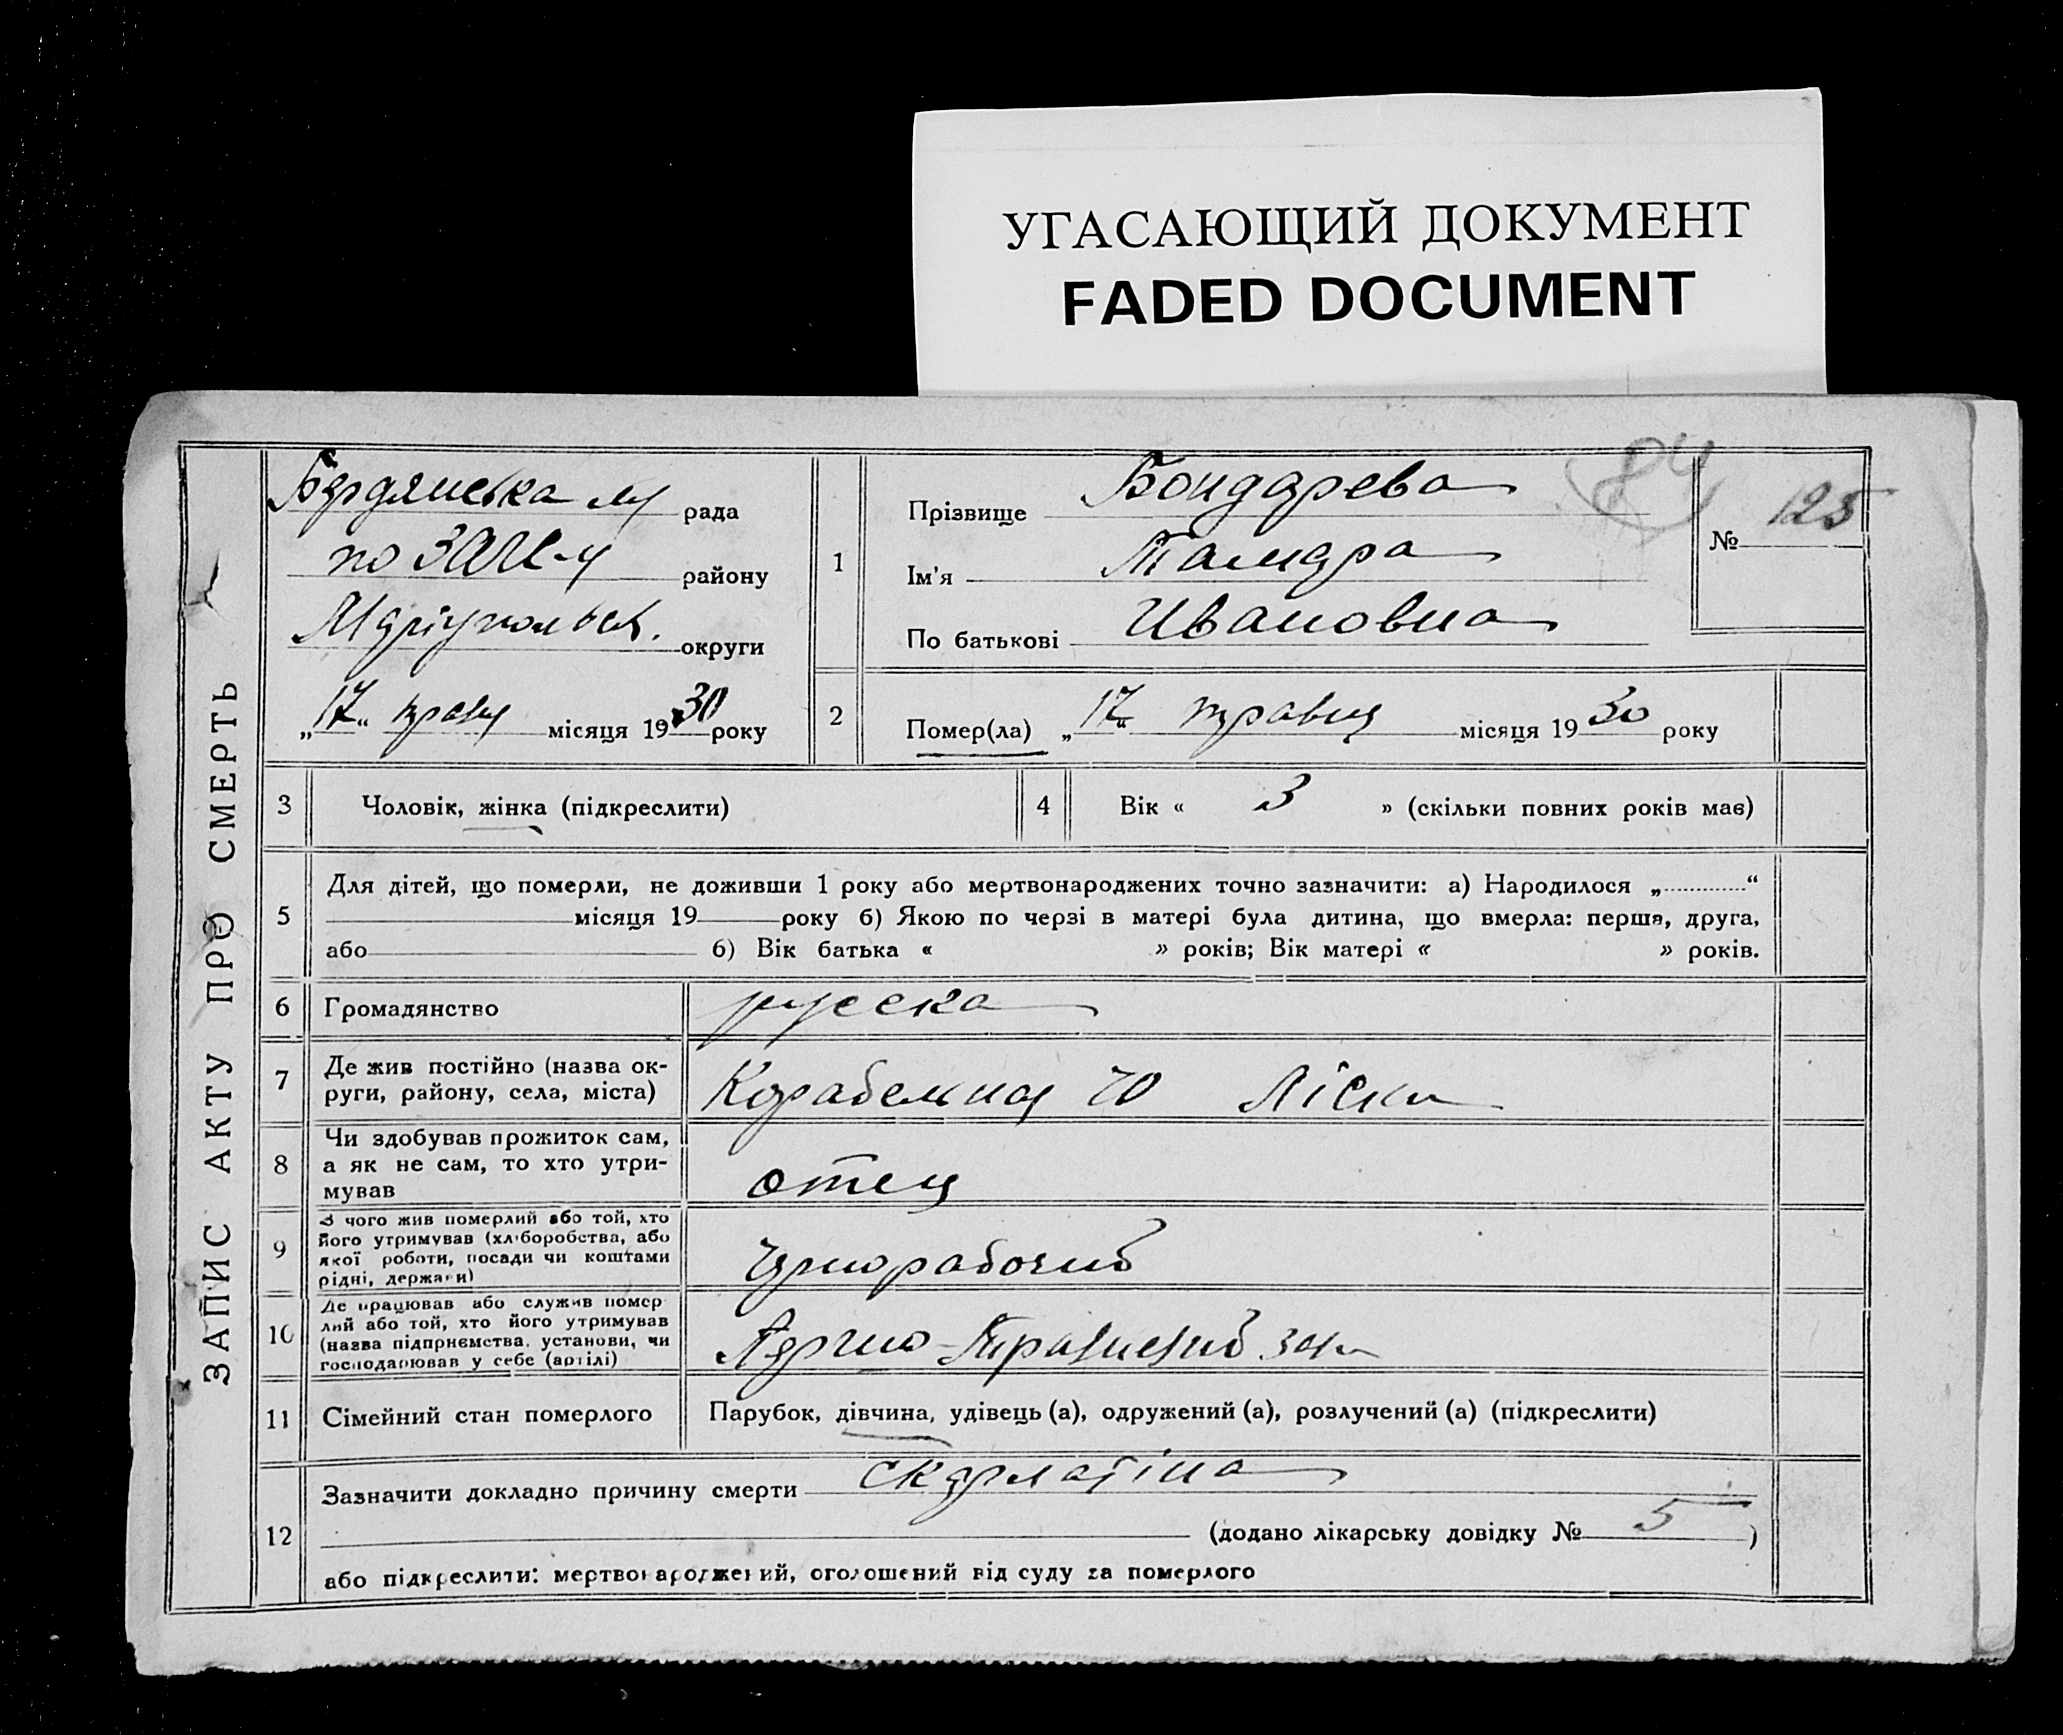 УГАСАЮЩИЙ ДОКУМЕНТ
FADED DOCUMENT
84
ЗАПИС АКТУ ПРО СМЕРТЬ
Бердянська м рада
по ЗАГС-у району
Маріупольськ. округи
„17“ травня місяця 1930 року
1
Прізвище Бондарева
Ім'я Тамара
По батькові Ивановна
№ 125
2
Помер(ла) „17“ травня місяця 1930 року
3 Чоловік, жінка (підкреслити)
4 Вік « 3 » (скільки повних років має)
5
Для дітей, що померли, не доживши 1 року або мертвонароджених точно зазначити: а) Народилося „ “
місяця 19 року б) Якою по черзі в матері була дитина, що вмерла: перша, друга,
або б) Вік батька « » років; Вік матері « » років.
6 Громадянство русска
7 Де жив постійно (назва ок-
руги, району, села, міста) Корабельная 70 Ліски
8 Чи здобував прожиток сам,
а як не сам, то хто утри-
мував отец
9 З чого жив померлий або той, хто
його утримував (хліборобства, або
якої роботи, посади чи коштами
рідні, держави) Чернорабочий
10 Де працював або служив помер
лий або той, хто його утримував
(назва підприємства, установи, чи
господарював у себе (артілі)
11 Сімейний стан померлого Парубок, дівчина, удівець (а), одружений (а), розлучений (а) (підкреслити)
12 Зазначити докладно причину смерти скарлатіна
(додано лікарську довідку № 5 )
або підкреслити: мертвонароджений, оголошений від суду за померлого